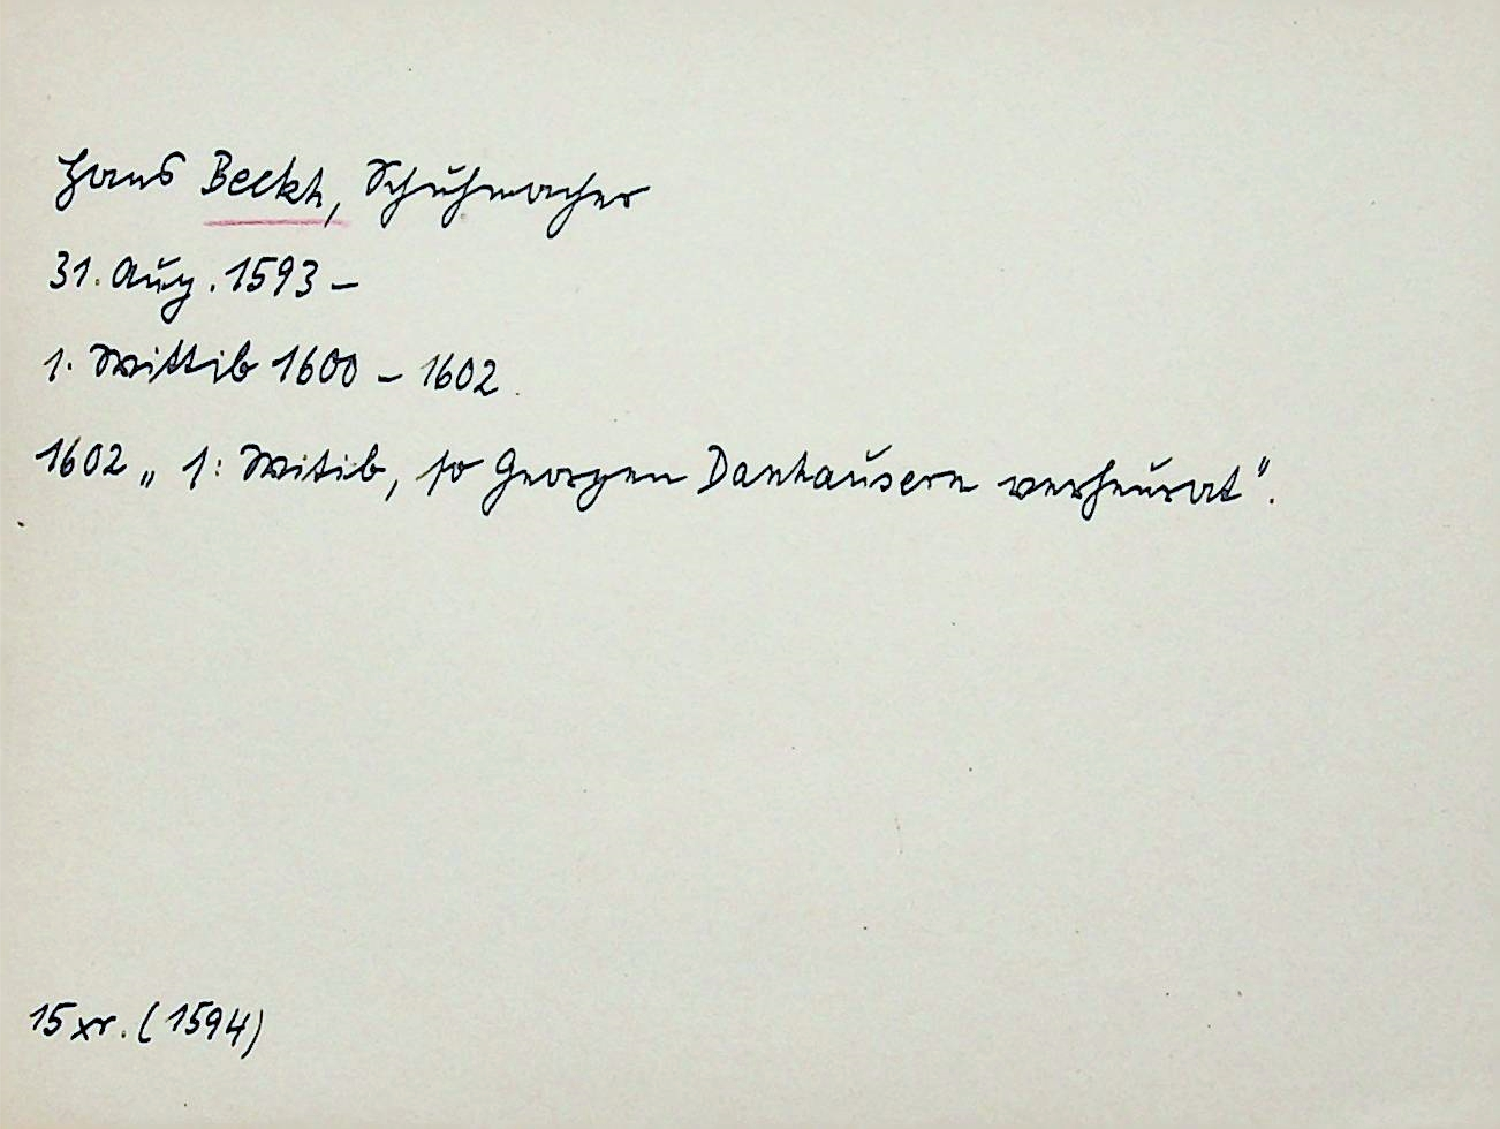 Hans Beckh, Schuhmacher
31. Aug. 1593 –
1. Wittib 1600 – 1602.
1602 „ 1: Witib, so Georgen Danhausern verheurat".
15 xr. (1594)